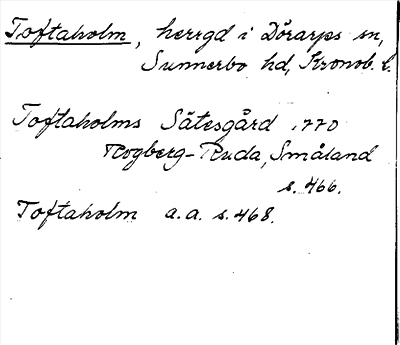 Toftaholm, herrgd i Dörarps sn,
Sunnerbo hd, Kronob. l.
Toftaholms Sätesgård 1770
Rogberg-Ruda, Småland
s. 466.
Toftaholm a.a. s. 468.